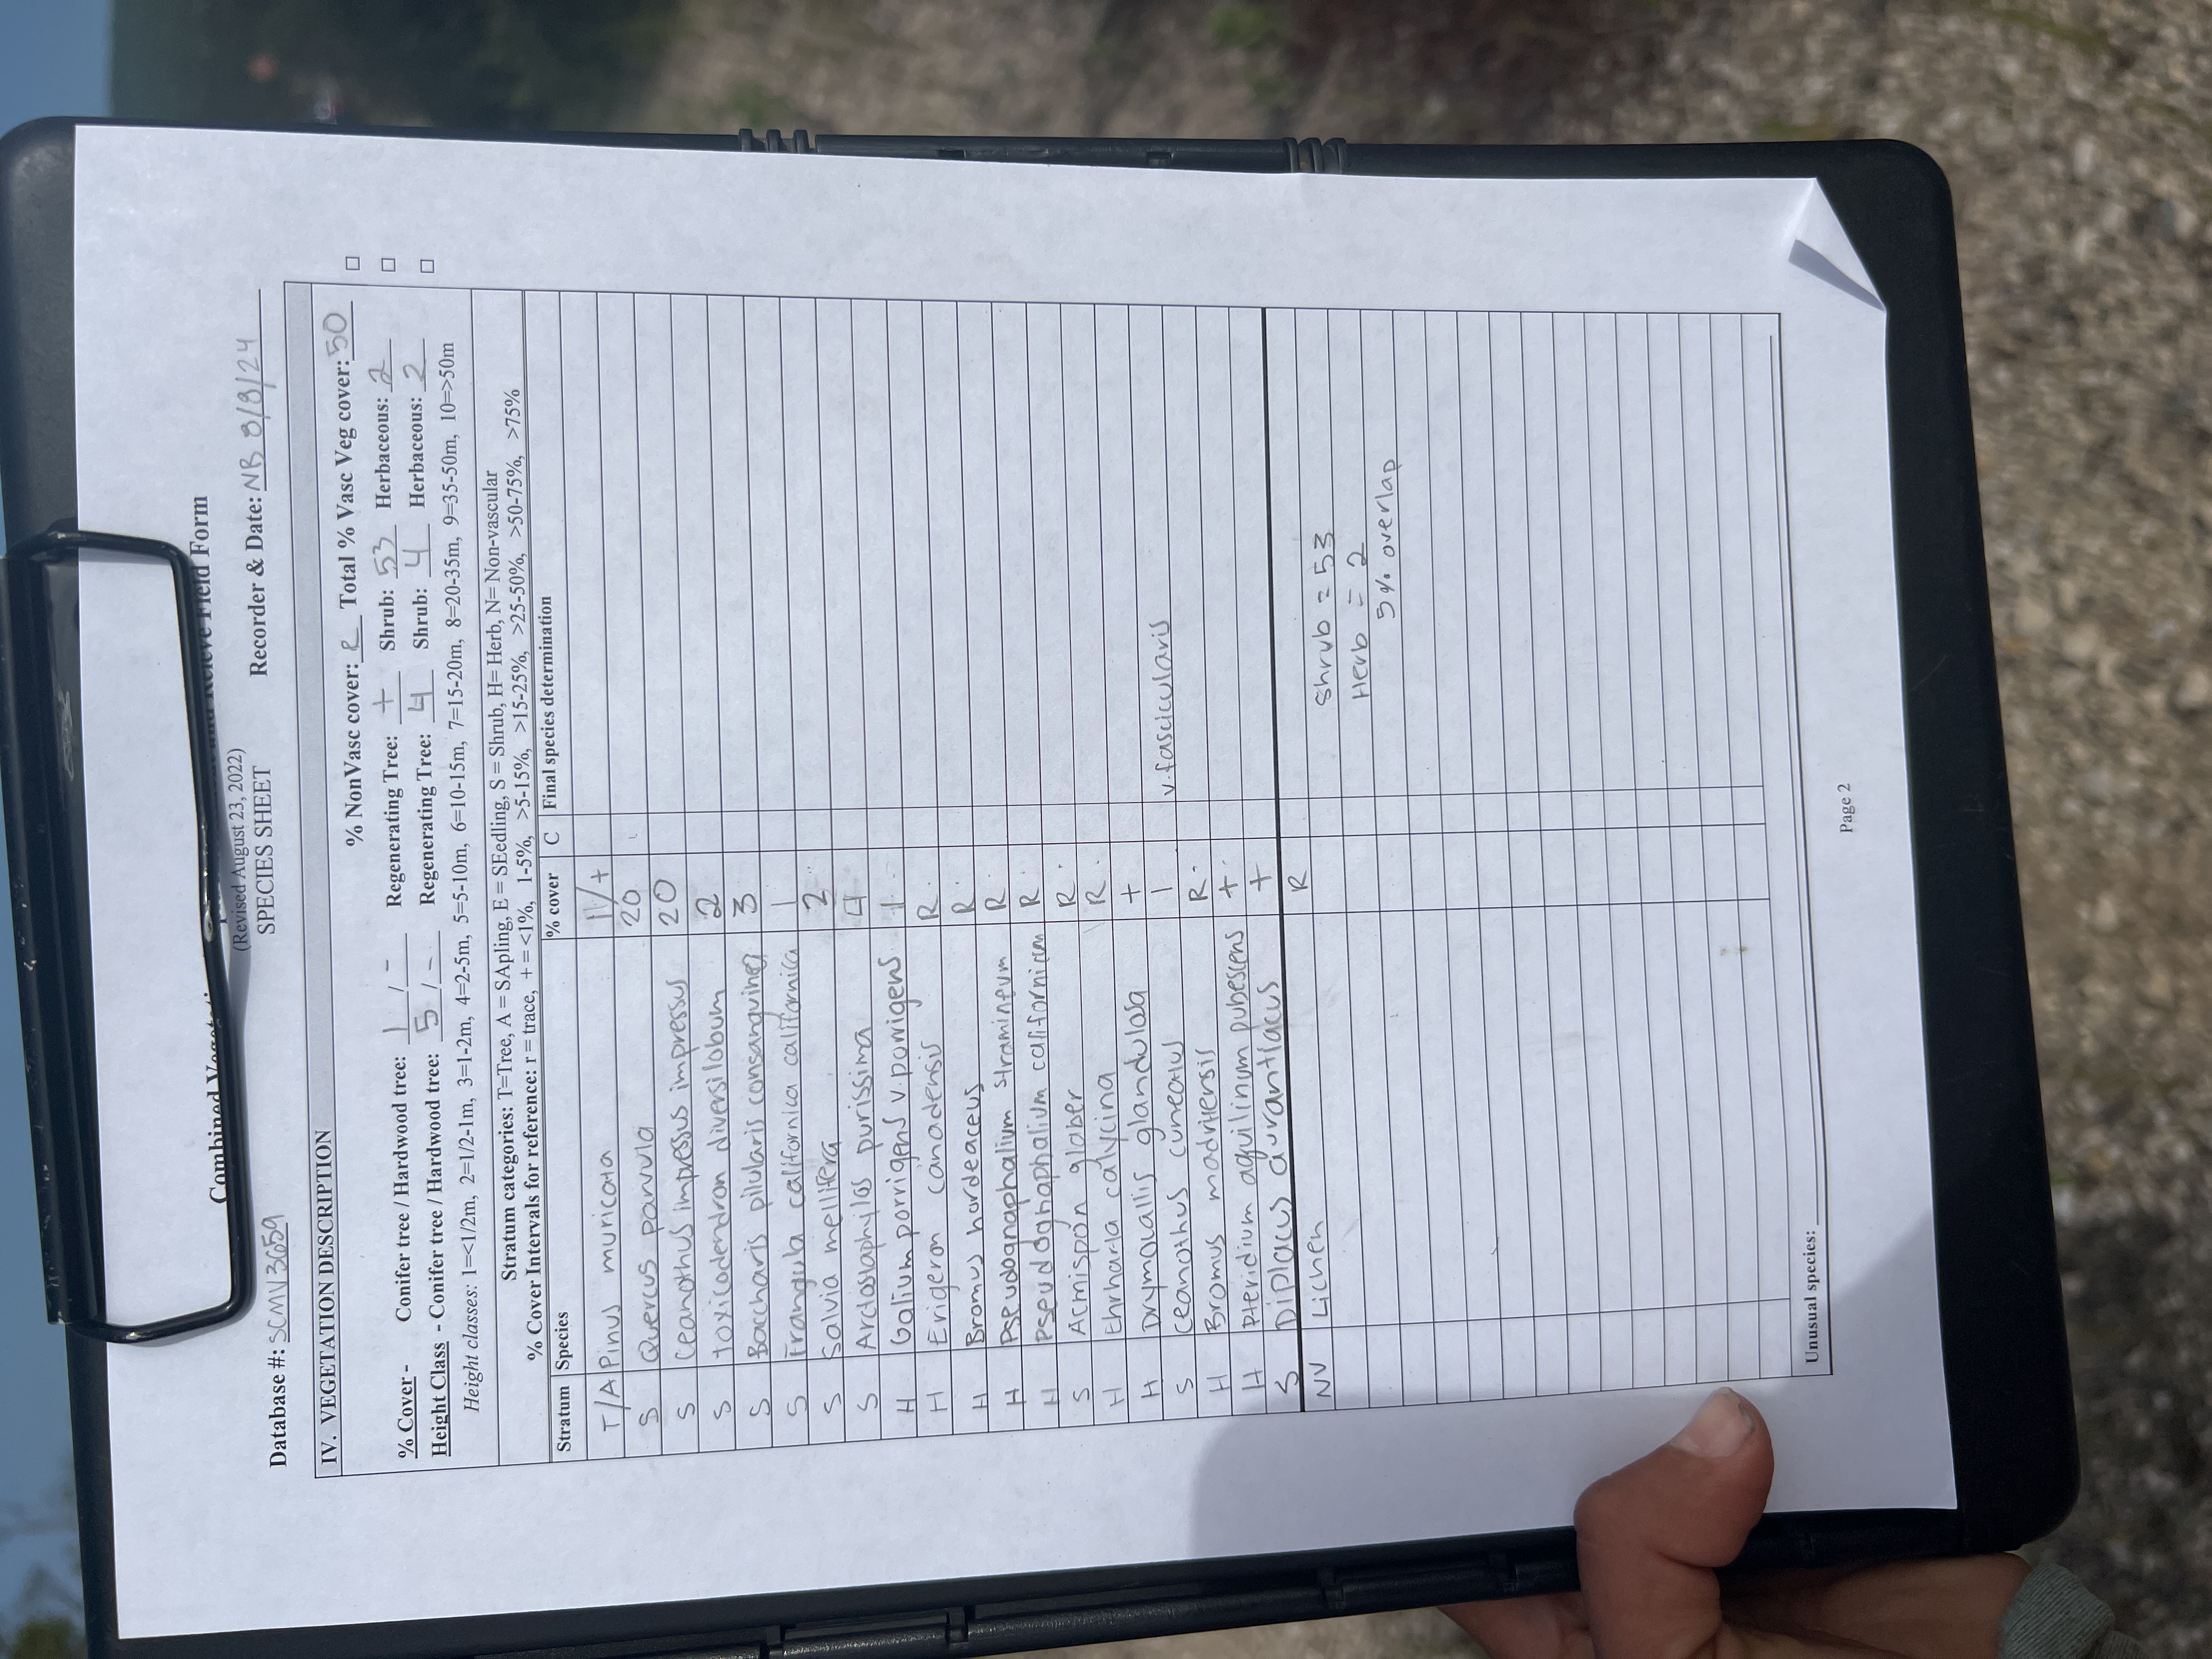 Combined Vegetation and Relevé Field Form
(Revised August 23, 2022)
SPECIES SHEET
Database #: SCMV3659 Recorder & Date: NB 8/8/24
IV. VEGETATION DESCRIPTION
% NonVasc cover: R Total % Vasc Veg cover: 50 □
% Cover - Conifer tree / Hardwood tree: 1 / - Regenerating Tree: + Shrub: 53 Herbaceous: 2 □
Height Class - Conifer tree / Hardwood tree: 5 / - Regenerating Tree: 4 Shrub: 4 Herbaceous: 2 □
Height classes: 1=<1/2m, 2=1/2-1m, 3=1-2m, 4=2-5m, 5=5-10m, 6=10-15m, 7=15-20m, 8=20-35m, 9=35-50m, 10=>50m
Stratum categories: T=Tree, A = SApling, E = SEedling, S = Shrub, H= Herb, N= Non-vascular
% Cover Intervals for reference: r = trace, + = <1%, 1-5%, >5-15%, >15-25%, >25-50%, >50-75%, >75%
Stratum Species % cover C Final species determination
T/A Pinus muricata 1/+
S Quercus parvula 20
S Ceanothus impressus impressus 20
S toxicodendron diversilobum 2
S Baccharis pilularis consanguinea 3
S Frangula californica californica 1
S Salvia mellifera 2
S Arctostaphylos purissima 4
H Galium porrigens v. porrigens 1
H Erigeron canadensis R
H Bromus hordeaceus R
H Pseudognaphalium stramineum R
H Pseudognaphalium californicum R
S Acmispon glaber R
H Ehrharta calycina R
H Drymocallis glandulosa +
S Ceanothus cuneatus 1 v. fascicularis
H Bromus madritensis R
H Pteridium aquilinum pubescens +
S Diplacus aurantiacus +
NV Lichen R
Shrub = 53
Herb = 2
5% overlap
Unusual species:
Page 2